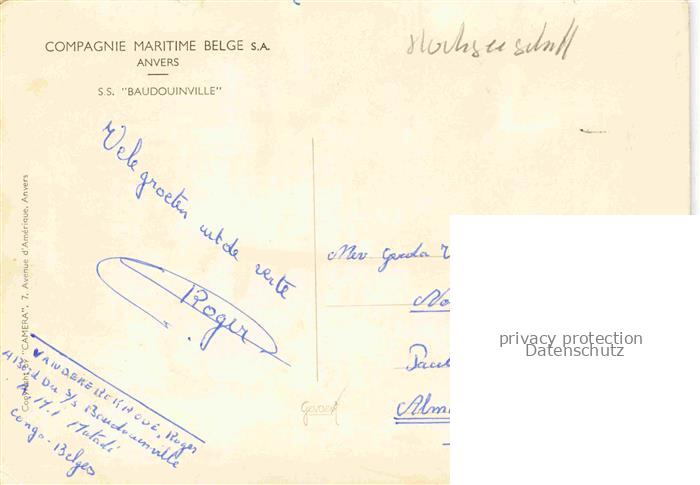 COMPAGNIE MARITIME BELGE S.A.
ANVERS
S.S. "BAUDOUINVILLE"
Hochseeschiff
Vele groeten uit de verte
Roger
Copyright by "CAMERA", 7, Avenue d'Amérique, Anvers
VANDEKERCKHOVE, Roger
A Bord Du S/S Baudouinville
Matadi
Congo-Belge
Mev Gerda
Gevaert
privacy protection
Datenschutz